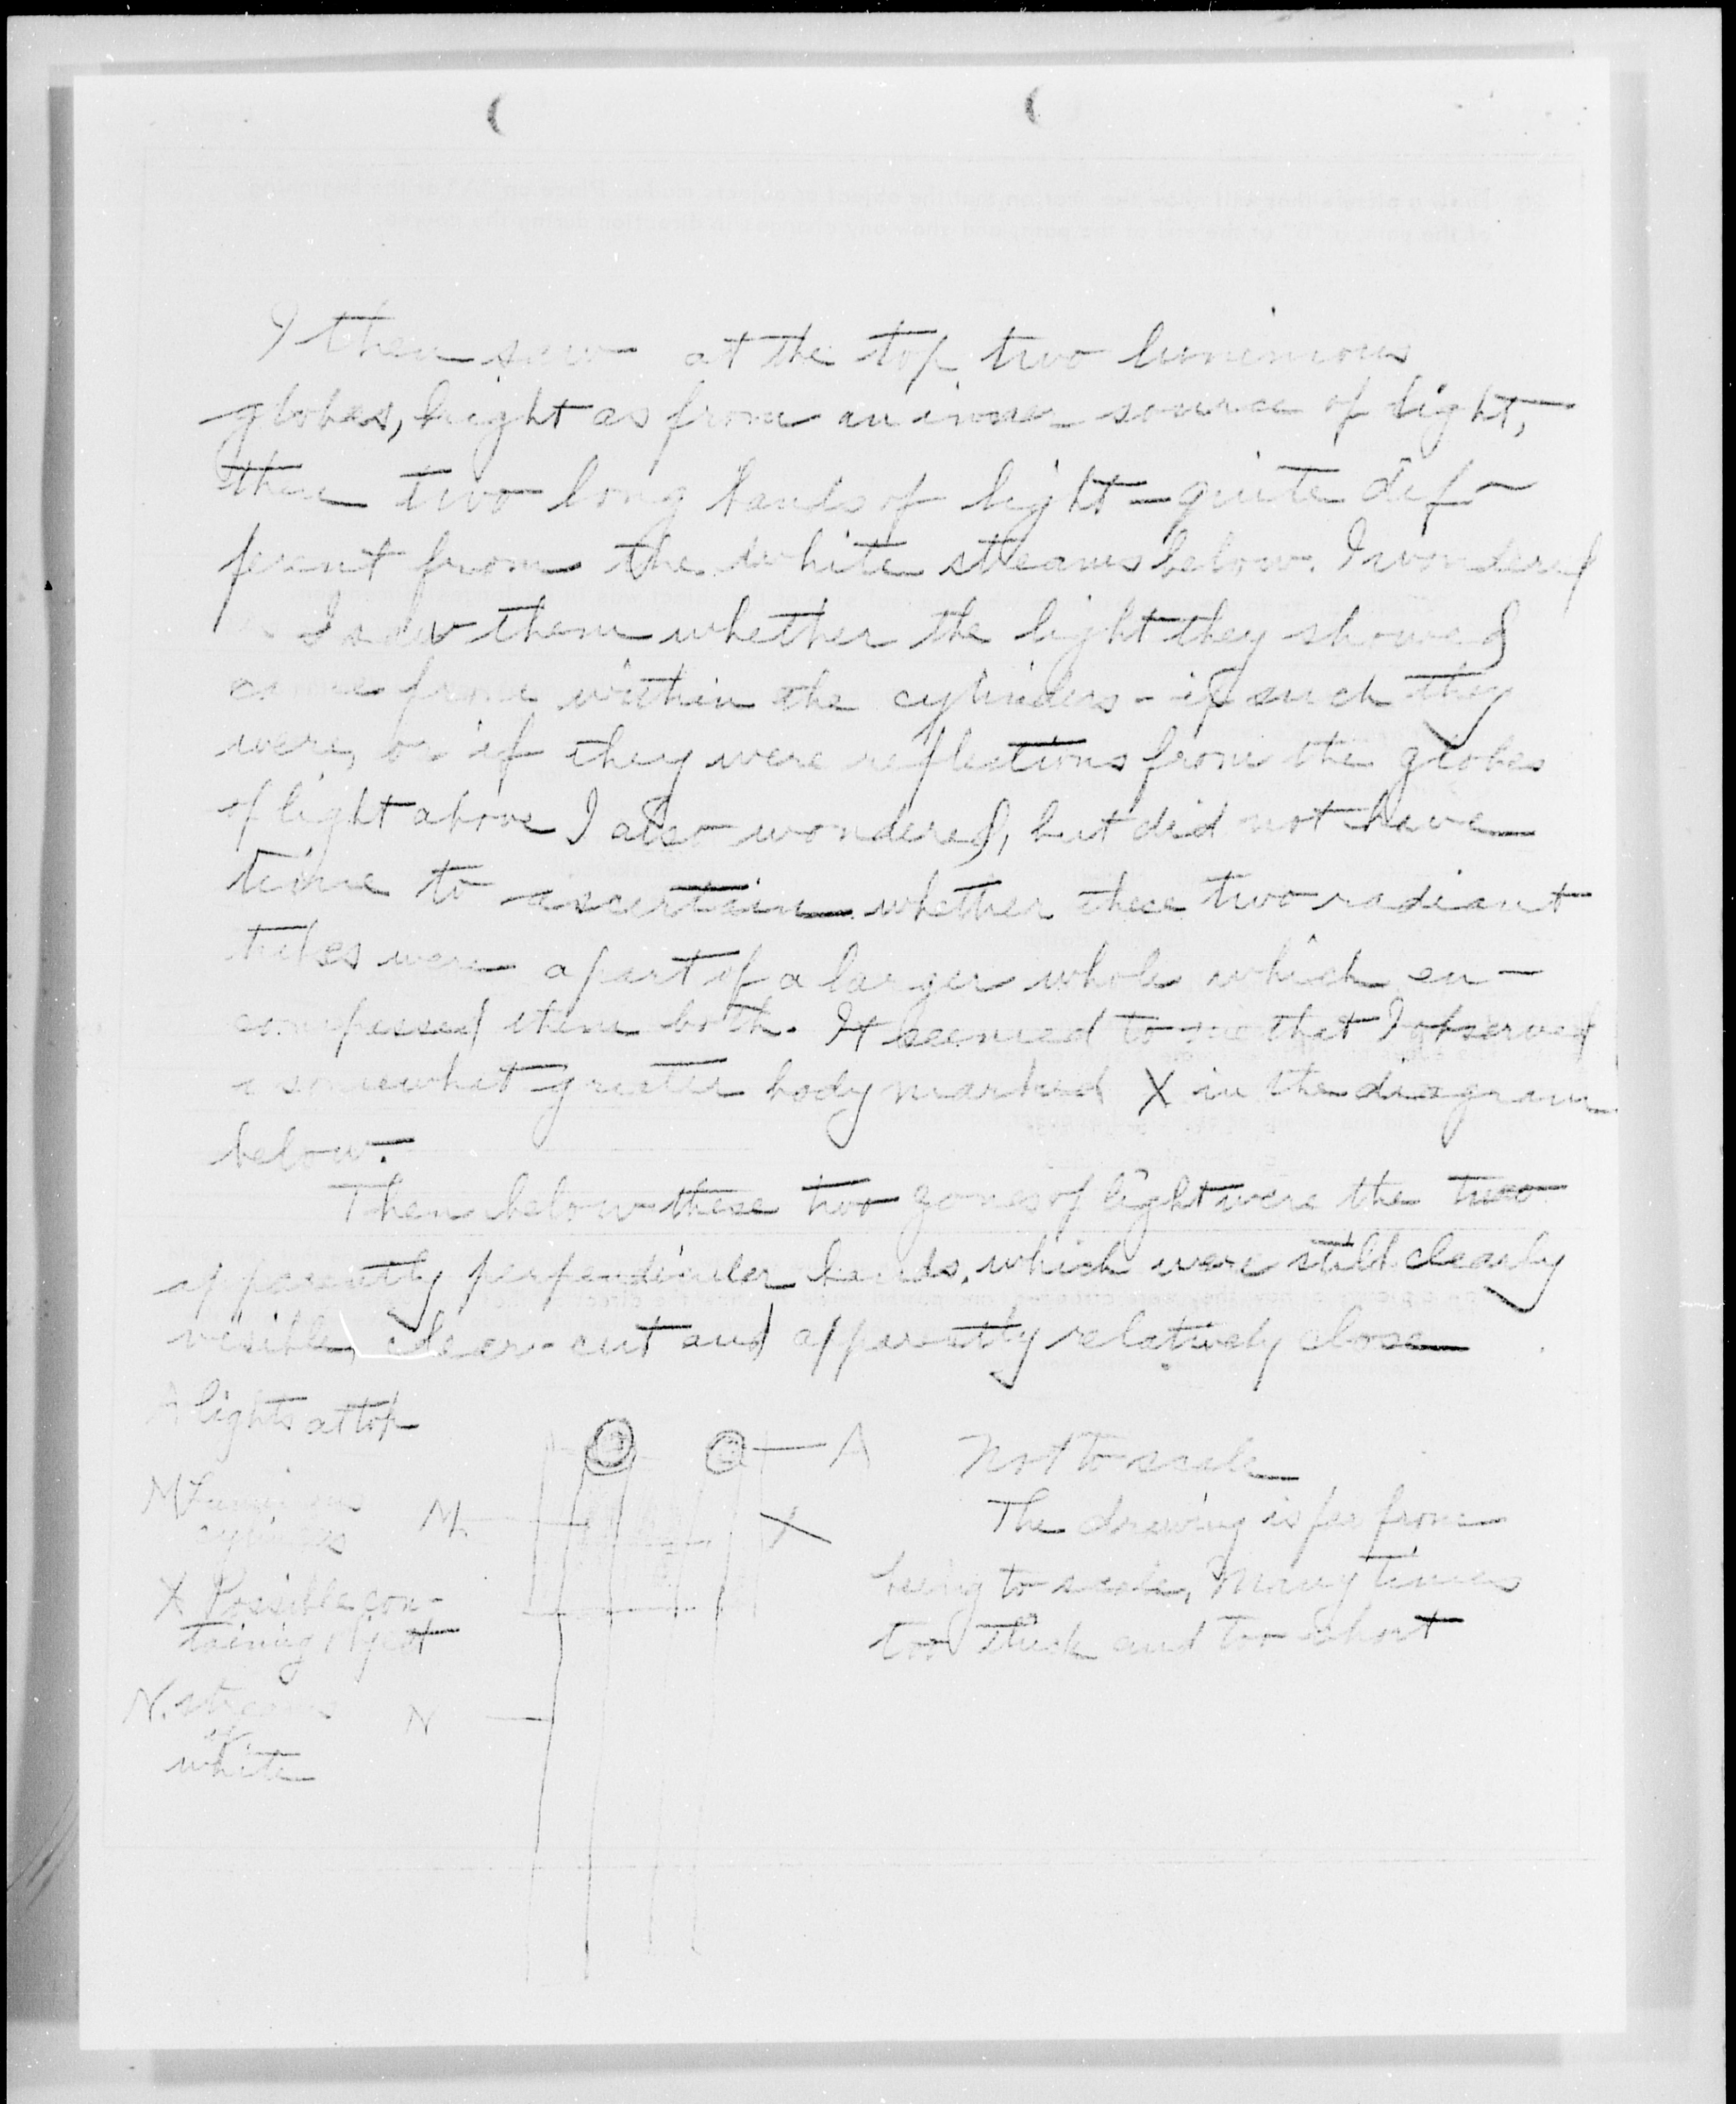 I then saw at the top two luminous
globes, bright as from an inner source of light,
then two long bands of light – quite dif-
ferent from the white streams below. I wondered
as I saw them whether the light they showed
came from within the cylinders – if such they
were, or if they were reflections from the globes
of light above I also wondered, but did not have
time to ascertain whether these two radiant
tubes were a part of a larger whole which en-
compassed them both. It seemed to me that I observed
a somewhat greater body marked X in the diagram
below.
Then below these two zones of light were the two
apparently perpendicular bands, which were still clearly
visible, clear-cut and apparently relatively close
A lights at top
A
Not to scale
M Luminous
cylinders
M
X
The drawing is far from
being to scale, many times
too thick and too short
X Possible con-
taining object
N. streams
of
white
N